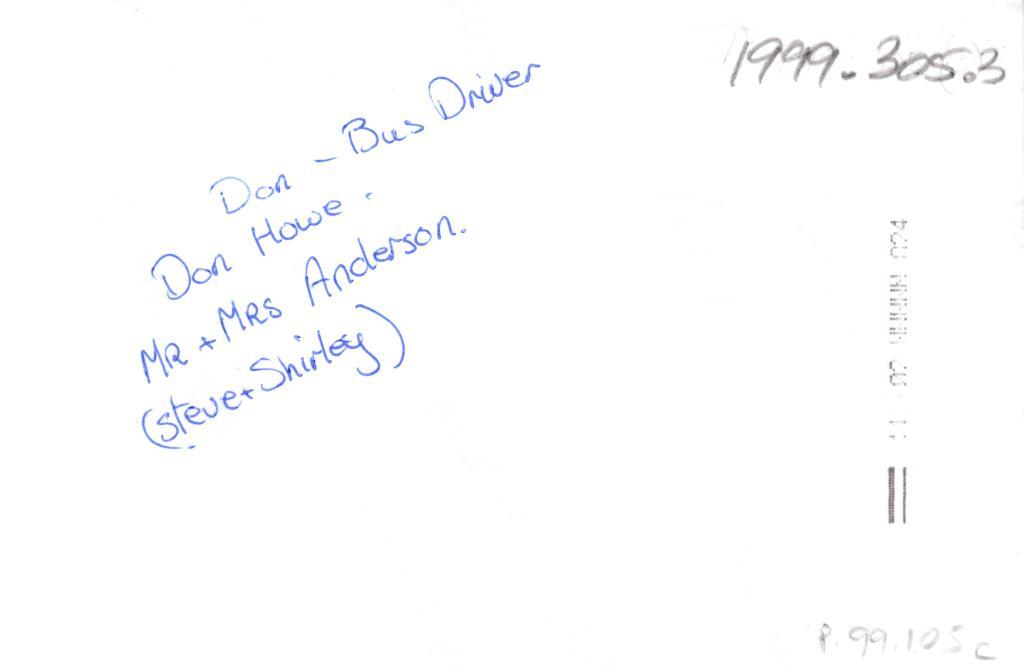 1999.305.3
Don - Bus Driver
Don Howe.
MR + MRS Anderson.
(Steve + Shirley)
P.99.105c